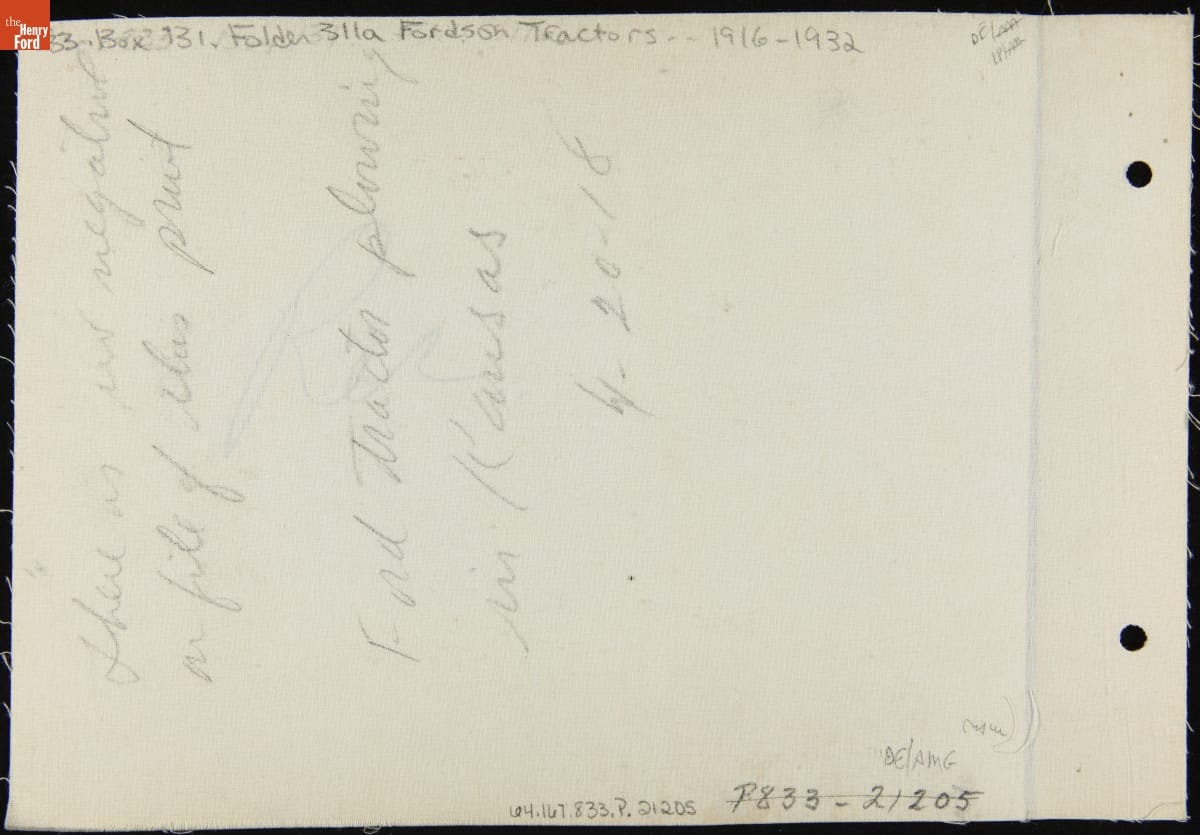 the
Henry
Ford
33-Box 131. Folder 311a Fordson Tractors -- 1916-1932
DE/AAA
there is no negative
on file of this print
Ford Tractor plowing
in Kansas
4-20-18
DE/AMG
64.167.833.P.21205
P833-21205